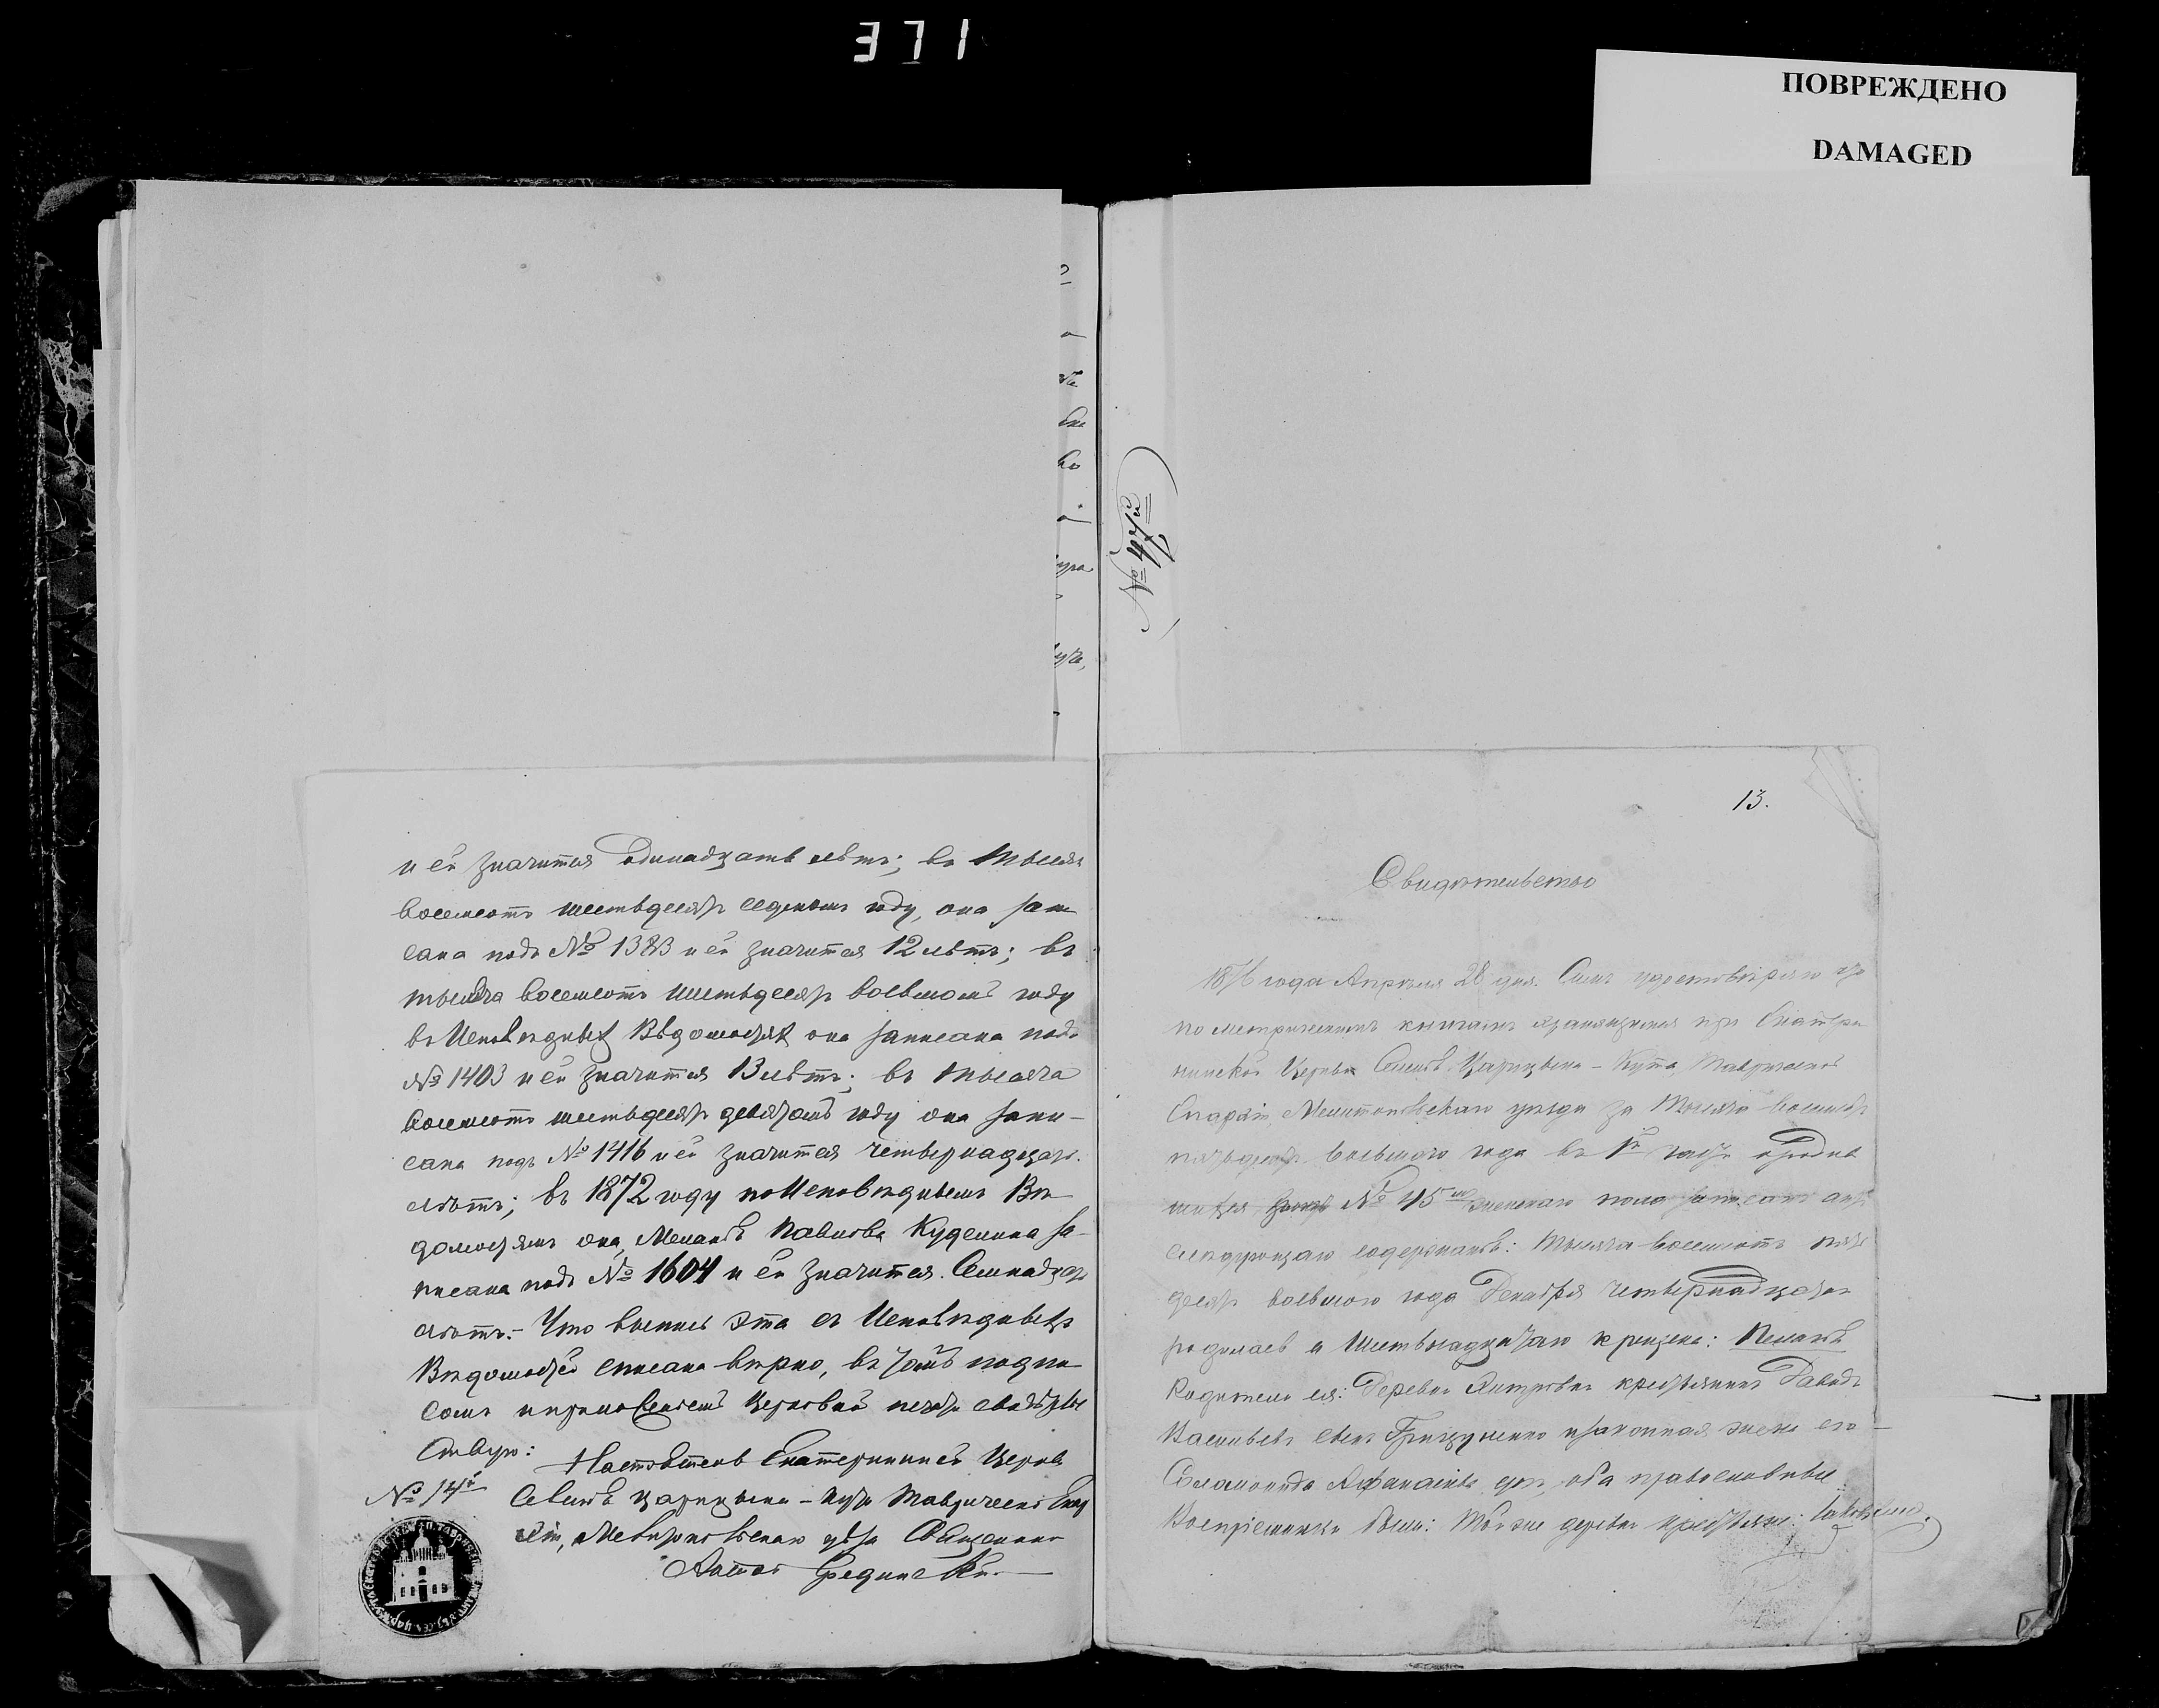 371
ПОВРЕЖДЕНО
DAMAGED
№ 47й
и ей значится одинадцать лѣтъ; въ тысяча
восемсотъ шестьдесятъ седьмомъ году, она запи
сана подъ № 1383 и ей значится 12 лѣтъ; въ
тысяча восемсотъ шестьдесятъ восьмомъ году
въ Исповѣдныхъ Вѣдомостяхъ она записана подъ
№ 1403 и ей значится 13 лѣтъ; въ тысяча
восемсотъ шестьдесятъ девятомъ году она запи-
сана подъ № 1416 и ей значится четырнадцать
лѣтъ; въ 1872 году по Исповѣднымъ Вѣ
домостямъ она, Меланія Павлова Куделина за-
писана подъ № 1604 и ей значится семнадцать
лѣтъ.- Что выпись эта съ Исповѣдныхъ
Вѣдомостей списана вѣрно, въ томъ подпи
сомъ и приложеніемъ Церковной печати свидѣтель
ствую:
Настоятель Екатерининской Церкви
№ 14й
Селенія Царицына-Кута Таврической Епар
хіи, Мелитопольскаго уѣзда Священникъ
13.
Свидѣтельство
1876 года Апрѣля 28 дня. Симъ удостовѣряю что
по метрическимъ книгамъ хранящимся при Екатери
нинской Церкви Селенія Царицына-Кута, Таврической
Епархіи, Мелитопольскаго уѣзда за тысяча восемьсотъ
пятьдесятъ восьмого года въ 1й части о родив
шихся № 45 женскаго пола записанъ актъ
слѣдующаго содержанія: Тысяча восемсотъ пять
десятъ восьмого года Декабря четырнадцатаго
родилась а шестьнадцатаго крещена: Пелагія
Родители ея: Деревни Янчокрака крестьянинъ Давидъ
Васильевъ сынъ Грищуненко и законная жена его
Соломонида Афанасіева дочь, оба православные.
Воспріемники были: той же деревни крестьяне: